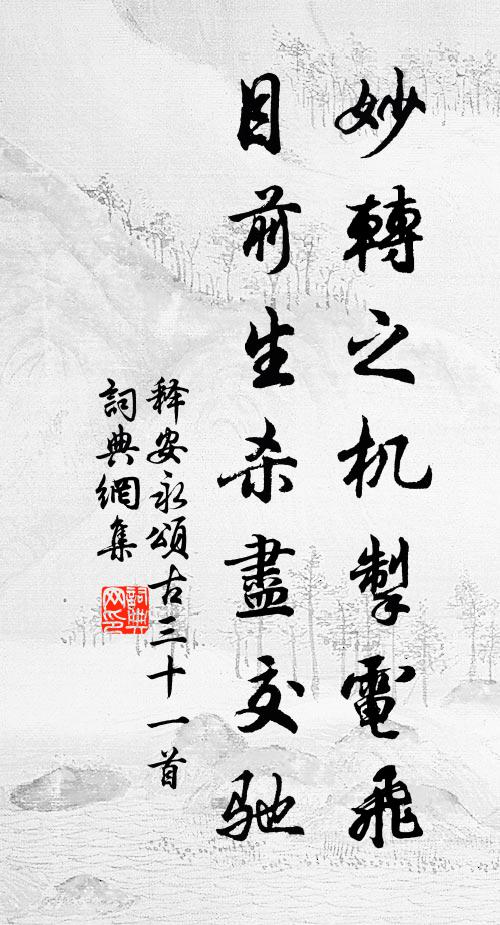 妙轉之机掣電飛
目前生杀盡交驰
释安永頌古三十一首
詞典網集
詞典
网印